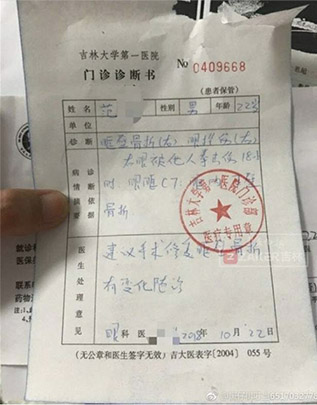 吉林大学第一医院
门诊诊断书
No 0409668
(患者保管)
姓名 范 性别 男 年龄 22岁
单位
诊断 眶壁骨折(右) 眼挫伤(右)
右眼被他人拳击伤 18小
时 眼眶CT:
病情摘要 诊断依据
骨折
吉林大学第一医院门诊部
医疗专用章
医生处理意见
建议手术修复眶壁骨折
有变化随诊
眼科 医 2018年10月22日
(无公章和医生签字无效) 吉大医表字[2004] 055号
就诊
医保
联系
药物